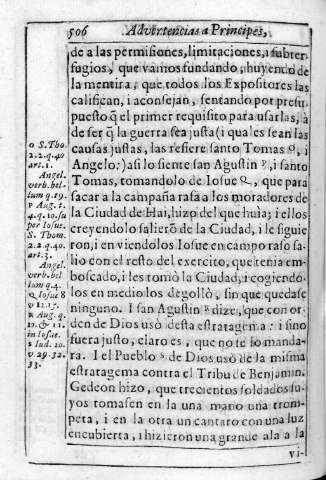 506 Advertencias a Principes,
de a las permisiones, limitaciones, i subter-
fugios, que vamos fundando, huyendo de
la mentira, que todos los Expositores las
califican, i aconsejan, sentando por presu-
puesto q̃ el primer requisito para usarlas, a
de ser q̃ la guerra sea justa (i quales sean las
causas justas, las refiere santo Tomas o, i
Angelo:) asi lo siente san Agustin p, i santo
Tomas, tomandolo de Iosue Q, que para
sacar a la campaña rasa a los moradores de
la Ciudad de Hai, hizo del que huia; i ellos
creyendolo salierõ de la Ciudad, i le siguie
ron, i en viendolos Iosue en campo raso sa-
lio con el resto del exercito, que tenia em-
boscado, i les tomò la Ciudad, i cogiendo-
los en medio los degollò, sin que quedase
ninguno. I san Agustin R dize, que con or-
den de Dios usò desta estratagema: i sino
fuera justo, claro es, que no te lo manda-
ra. I el Pueblo s de Dios usò de la misma
estratagema contra el Tribu de Benjamin.
Gedeon hizo, que trecientos soldados su-
yos tomasen en la una mano una trom-
peta, i en la otra un cantaro con una luz
encubierta, i hizieron una grande ala a la
vi-
o S. Tho.
2.2.q.40
art.1.
Angel.
verb. bel-
lum q.19.
p Aug. t.
4.q.10. su
per Iosue.
S. Thom.
2.2.q.40.
art.3.
Angel.
verb. bel
lum q.4.
Q Iosue 8
R Aug. q.
in Iosue.
s Iud. 20.
v 29. 32.
33.